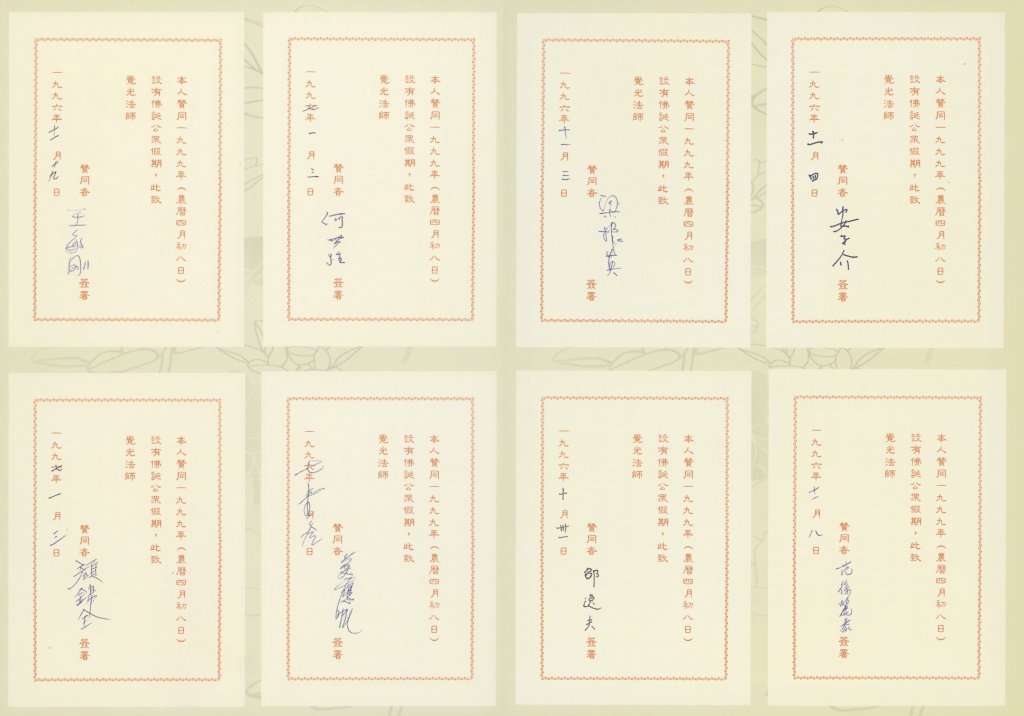 本人贊同一九九九年(農曆四月初八日)
設有佛誕公眾假期，此致
覺光法師
贊同者 王敏剛 簽署
一九九六年十一月十九日
本人贊同一九九九年(農曆四月初八日)
設有佛誕公眾假期，此致
覺光法師
贊同者 何世柱 簽署
一九九七年一月二日
本人贊同一九九九年(農曆四月初八日)
設有佛誕公眾假期，此致
覺光法師
贊同者 梁振英 簽署
一九九六年十一月三日
本人贊同一九九九年(農曆四月初八日)
設有佛誕公眾假期，此致
覺光法師
贊同者 安子介 簽署
一九九六年十一月四日
本人贊同一九九九年(農曆四月初八日)
設有佛誕公眾假期，此致
覺光法師
贊同者 顏錦全 簽署
一九九七年一月三日
本人贊同一九九九年(農曆四月初八日)
設有佛誕公眾假期，此致
覺光法師
贊同者 簽署
一九九七年 月 日
本人贊同一九九九年(農曆四月初八日)
設有佛誕公眾假期，此致
覺光法師
贊同者 邵逸夫 簽署
一九九六年十月卅一日
本人贊同一九九九年(農曆四月初八日)
設有佛誕公眾假期，此致
覺光法師
贊同者 范徐麗泰 簽署
一九九六年十一月八日